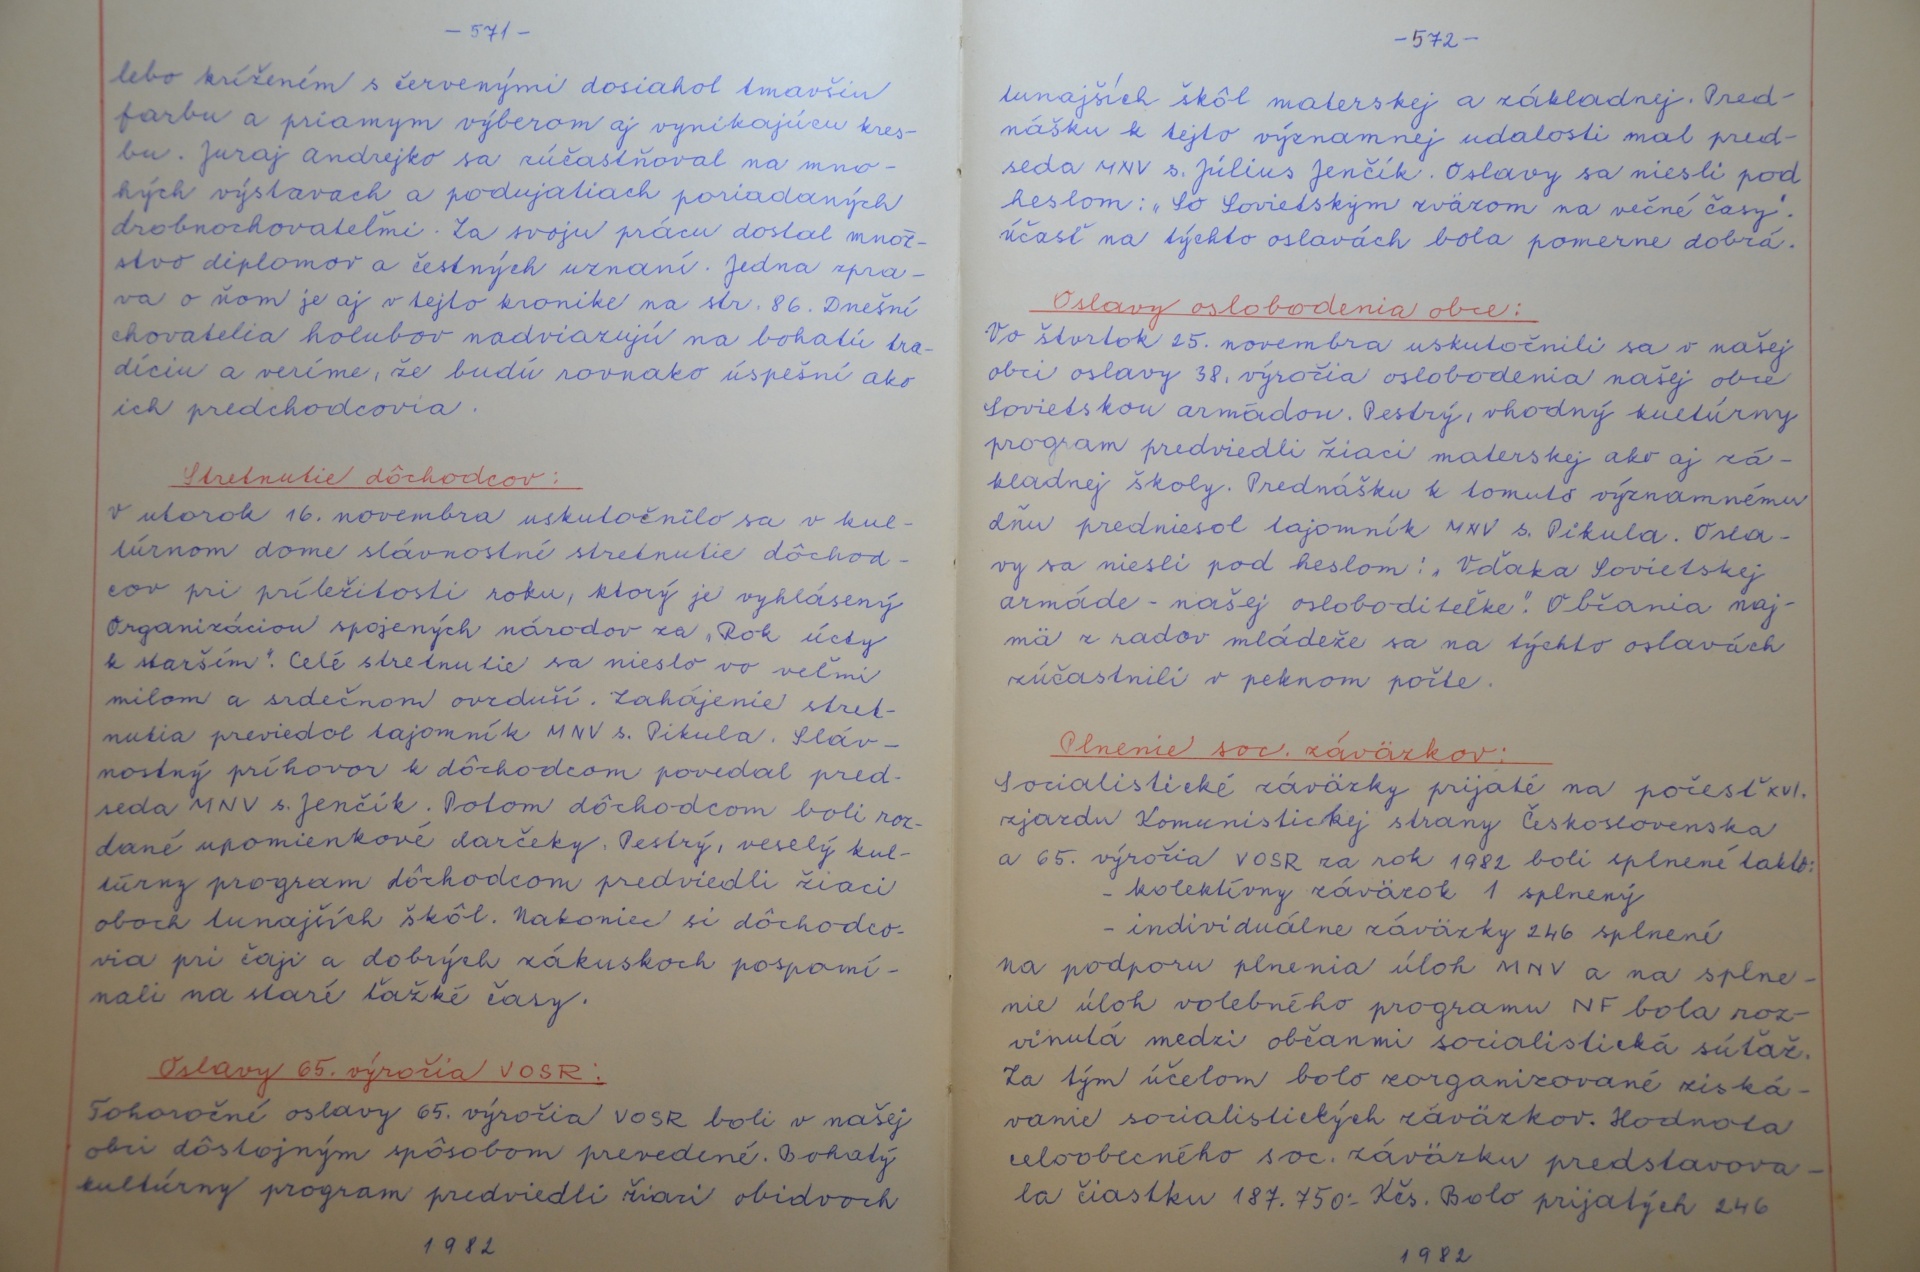 - 571 -
lebo kríženém s červenými dosiahol tmavšiu
farbu a priamym výberom aj vynikajúcu kres-
bu. Juraj Andrejko sa zúčastňoval na mno-
hých výstavach a podujatiach poriadaných
drobnochovateľmi. Za svoju prácu dostal množ-
stvo diplomov a čestných uznaní. Jedna zpra-
va o ňom je aj v tejto kronike na str. 86. Dnešní
chovatelia holubov nadviazujú na bohatú tra-
díciu a veríme, že budú rovnako úspešní ako
ich predchodcovia.
Stretnutie dôchodcov:
V utorok 16. novembra uskutočnilo sa v kul-
túrnom dome slávnostné stretnutie dôchod-
cov pri príležitosti roku, ktorý je vyhlásený
Organizáciou spojených národov za „Rok úcty
k starším". Celé stretnutie sa nieslo vo veľmi
milom a srdečnom ovzduší. Zahájenie stret-
nutia previedol tajomník MNV s. Pikula. Sláv-
nostný príhovor k dôchodcom povedal pred-
seda MNV s. Jenčík. Potom dôchodcom boli roz-
dané upomienkové darčeky. Pestrý, veselý kul-
túrny program dôchodcom predviedli žiaci
oboch tunajších škôl. Nakoniec si dôchodco-
via pri čaji a dobrých zákuskoch pospomí-
nali na staré ťažké časy.
Oslavy 65. výročia VOSR:
Tohoročné oslavy 65. výročia VOSR boli v našej
obci dôstojným spôsobom prevedené. Bohatý
kultúrny program predviedli žiaci obidvoch
1982
- 572 -
tunajších škôl materskej a základnej. Pred-
nášku k tejto významnej udalosti mal pred-
seda MNV s. Július Jenčík. Oslavy sa niesli pod
heslom: „So Sovietským zväzom na večné časy".
Účasť na týchto oslavách bola pomerne dobrá.
Oslavy oslobodenia obce:
Vo štvrtok 25. novembra uskutočnili sa v našej
obci oslavy 38. výročia oslobodenia našej obce
Sovietskou armádou. Pestrý, vhodný kultúrny
program predviedli žiaci materskej ako aj zá-
kladnej školy. Prednášku k tomuto významnému
dňu predniesol tajomník MNV s. Pikula. Osla-
vy sa niesli pod heslom: „Vďaka Sovietskej
armáde - našej osloboditeľke". Občania naj-
mä z radov mládeže sa na týchto oslavách
zúčastnili v peknom počte.
Plnenie soc. záväzkov:
Socialistické záväzky prijaté na počesť XVI.
zjazdu Komunistickej strany Československa
a 65. výročia VOSR za rok 1982 boli splnené takto:
- kolektívny záväzok 1 splnený
- individuálne záväzky 246 splnené
na podporu plnenia úloh MNV a na splne-
nie úloh volebného programu NF bola roz-
vinutá medzi občanmi socialistická súťaž.
Za tým účelom bolo zorganizované získá-
vanie socialistických záväzkov. Hodnota
celoobecného soc. záväzku predstavova-
la čiastku 187.750.- Kčs. Bolo prijatých 246
1982